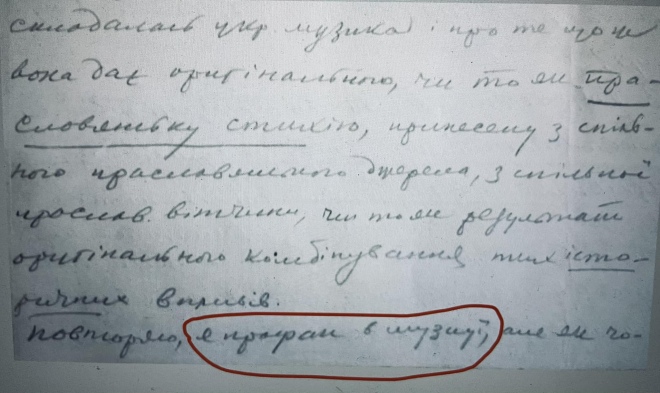 складалась укр музика і про те що ж
вона дає оригінального, чи то як пра-
словянську стихію, принесену з спіль-
ного праславянського джерела, з спільної
прослав. вітчини, чи то як результат
оригінального комбінування тих істо-
ричних впливів.
Повторяю, я профан в музиці, але як чо-